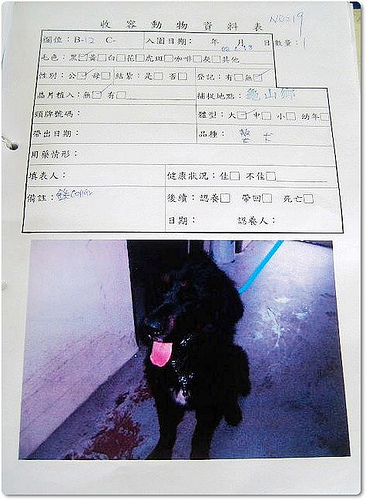 NO219
收容動物資料表
欄位：B-12 C- 入園日期： 年 月 日 數量：1
毛色：黑☑黃□白□花□虎斑□咖啡□灰□其他
性別：公☑母□ 結紮：是□ 否□ 登記：有□無☑
晶片植入：無☑有□ 捕捉地點：龜山鄉
頸牌號碼： 體型：大☑中□小□幼年□
帶出日期： 品種：
用藥情形：
填表人： 健康狀況：佳□ 不佳□
備註： 後續：認養□ 帶回□ 死亡□
日期： 認養人：